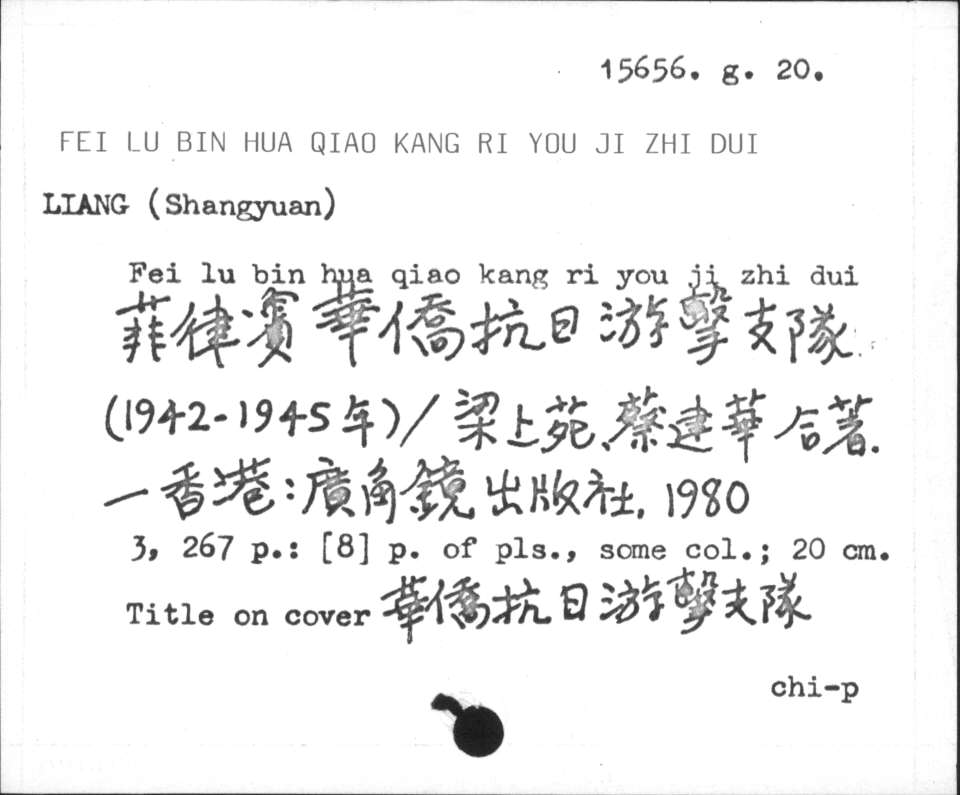 15656. g. 20.
FEI LU BIN HUA QIAO KANG RI YOU JI ZHI DUI
LIANG (Shangyuan)
Fei lu bin hua qiao kang ri you ji zhi dui
菲律濱華僑抗日游擊支隊
(1942-1945年)/梁上苑、蔡建華合著.
—香港:廣角鏡出版社, 1980
3, 267 p.: [8] p. of pls., some col.; 20 cm.
Title on cover 華僑抗日游擊支隊
chi-p